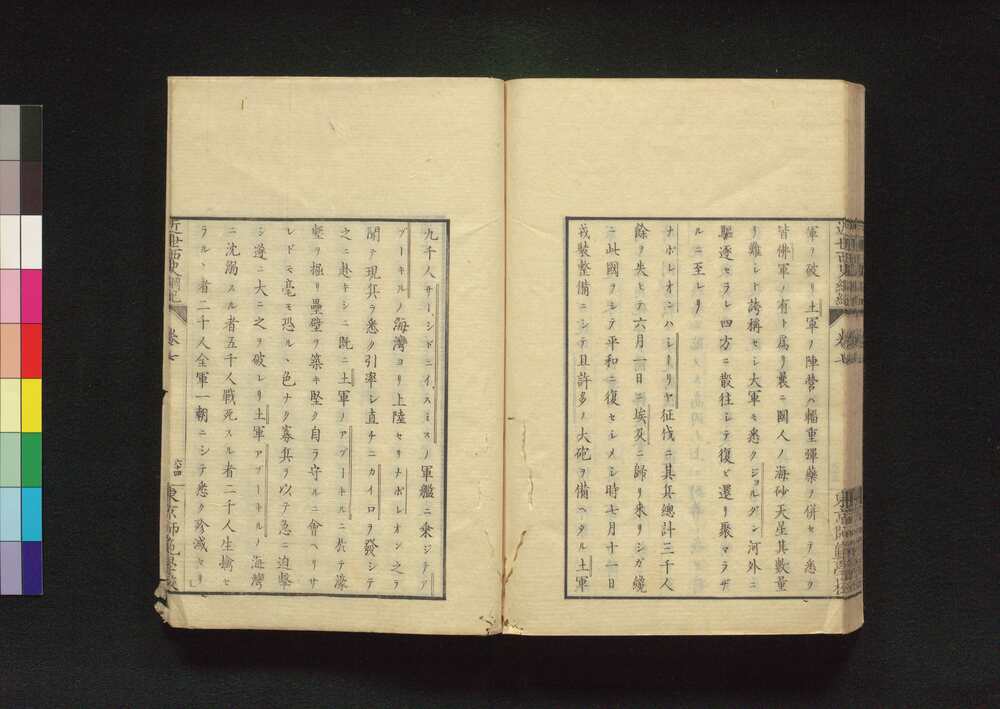 軍ヲ破リ土軍ノ陣營ハ輜重彈藥ヲ併セテ悉ク
皆佛軍ノ有ト爲リ曩ニ國人ノ海砂天星其數量
リ難シト誇稱セシ大軍モ悉クジョルダン河外ニ
驅逐セラレ四方ニ散往シテ復ビ還リ聚マラザ
ルニ至レリ
ナポレオンハシーリヤ征伐ニ其兵總計三千人
餘ヲ失ヒテ六月一日ニ埃及ニ歸リ來リシガ纔
ニ此國ヲシテ平和ニ復セシメシ時七月十一日
戎裝整備ニシテ且許多ノ大砲ヲ備ヘタル土軍
近世西史綱紀
卷七
東京師範學校
九千人サー、シドニイ、スミスノ軍艦ニ乘ジテア
ブーキルノ海灣ヨリ上陸セリナポレオン之ヲ
聞テ現兵ヲ悉ク引率シ直チニカイロヲ發シテ
之ニ赴キシニ既ニ土軍ノアブーキルニ於テ濠
塹ヲ掘リ壘壁ヲ築キ堅ク自ラ守ルニ會ヘリサ
レドモ毫モ恐ルヽ色ナク寡兵ヲ以テ急ニ迫擊
シ遂ニ大ニ之ヲ破レリ土軍アブーキルノ海灣
ニ沈溺スル者五千人戰死スル者二千人生擒セ
ラルヽ者二千人全軍一朝ニシテ悉ク殄滅セリ
近世西史綱紀
卷七
六四
東京師範學校